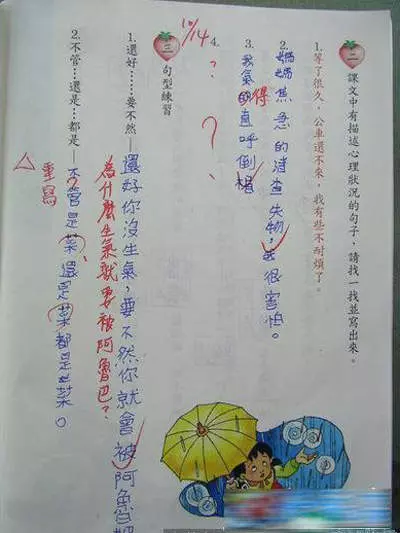 二 課文中有描述心理狀況的句子,請找一找並寫出來。
1.等了很久,公車還不來,我有些不耐煩了。
2.媽媽焦急的清查失物,我很害怕。
3.我氣的直呼倒楣
得
4.?
?
10/14
三 句型練習
1.還好……要不然—還好你沒生氣,要不然你就會被阿魯
為什麼生氣就要被阿魯巴?
2.不管…還是…都是—不管是菜還是菜都是菜。
重寫